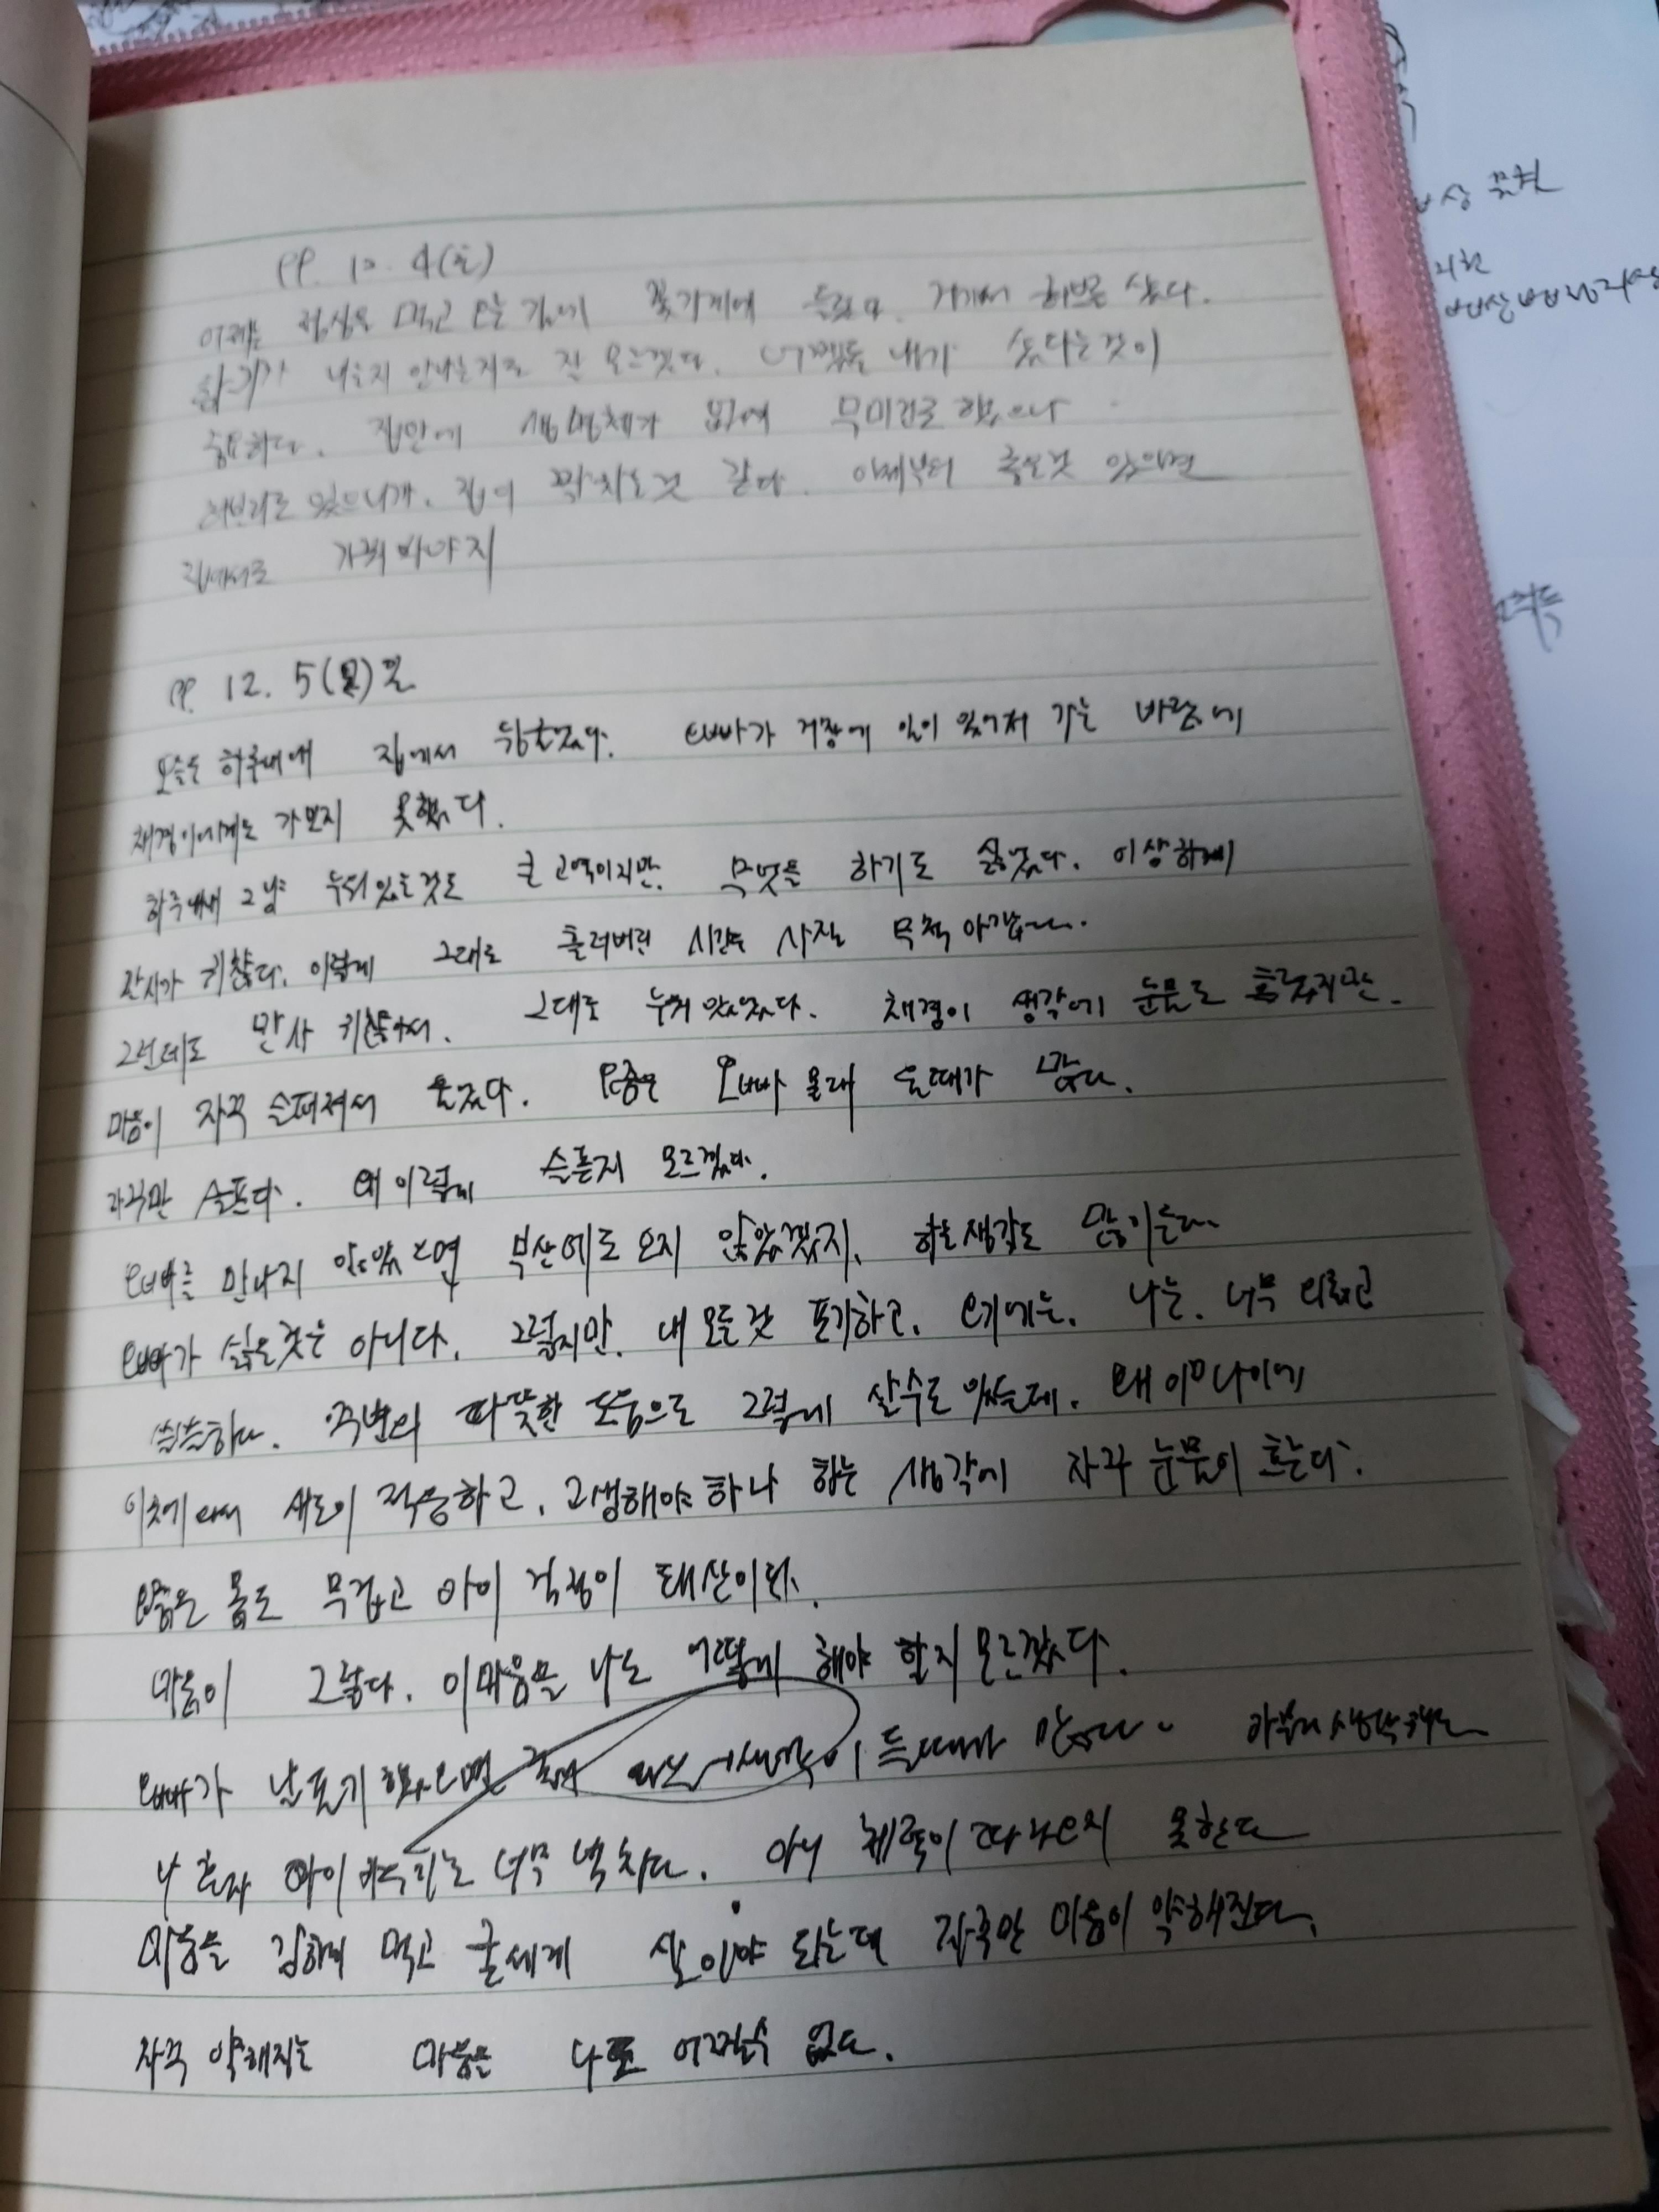 99. 12. 4(토)
어제는 점심을 먹고 오는 길에 꽃가게에 들렸다. 거기서 허브를 샀다.
향기가 나는지 안나는지도 잘 모르겠다. 어쨌든 내가 샀다는것이
중요하다. 집안에 생명체가 없어 무미건조했으나
허브라도 있으니까. 집이 꽉차는것 같다. 이제부터 좋은것 있으면
집에서도 가꿔봐야지
99. 12. 5(일)일
오늘은 하루내내 집에서 뒹굴었다. 오빠가 거창에 일이 있어서 가는 바람에
채경이에게도 가보지 못했다.
하루내내 그냥 누워있는것도 큰 고역이지만. 무엇을 하기도 싫었다. 이상하게
만사가 귀찮다. 이렇게 그대로 흘러버린 시간도 사실 무척 아깝다.
그런데도 만사 귀찮아서. 그대로 누워 있었다. 채경이 생각에 눈물도 흘렸지만.
마음이 자꾸 슬퍼져서 울었다. 요즘은 오빠 몰래 울때가 많다.
자꾸만 슬프다. 왜 이렇게 슬픈지 모르겠다.
오빠를 만나지 않았으면 부산에도 오지 않았겠지. 하는생각도 많이든다.
오빠가 싫은것은 아니다. 그렇지만. 내 모든것 포기하고. 여기에는. 나는. 너무 외롭고
씁쓸하다. 주변의 따뜻한 도움으로 그렇게 살수도 있는데. 왜 이 나이에
이곳에 와서 새로이 적응하고. 고생해야하나 하는 생각에 자꾸 눈물이 흐른다.
요즘은 몸도 무겁고 아이 걱정이 태산이다.
마음이 그렇다. 이마음을 나도 어떻게 해야 할지 모르겠다.
오빠가 날 포기했으면 하는 생각이 들때가 많다. 아무리 생각해도
나 혼자 아이 키우기는 너무 벅차다. 아니 체력이 따라오지 못한다
마음을 강하게 먹고 굳세게 살아야 되는데 자꾸만 마음이 약해진다.
자꾸 약해지는 마음은 나도 어쩔수 없다.